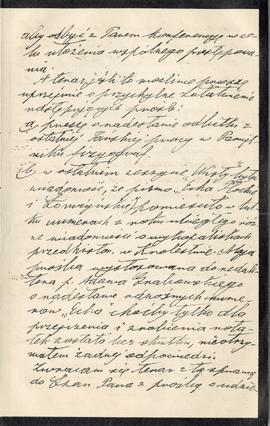 aby odbyć z Panem konferencyę w ce-
lu ułożenia wspólnego postępowa-
nia.
A teraz, jeśli to możliwe proszę
uprzejmie o przychylne załatwienie
następujących próśb:
a, proszę o nadesłanie odbitki z
ostatniej Pańskiej pracy w Pamięt-
niku fizyograf.
b, w ostatnim zeszycie "Wisły" była
wiadomość, że pismo "Echa Płockie
i Łomżyńskie" pomieściło w kil-
ku numerach z roku ubiegłego róż-
ne wiadomości o wykopaliskach
przedhistor. w Królestwie. Moja
prośba wystosowana do redak-
tora p. Adama
o nadesłanie odnośnych nume-
rów "Echa" choćby tylko dla
przejrzenia i zrobienia nota-
tek została bez skutku, nie otrzy-
małem żadnej odpowiedzi.
Zwracam się teraz z tą sprawą
do Szan. Pana z prośbą o udzie-